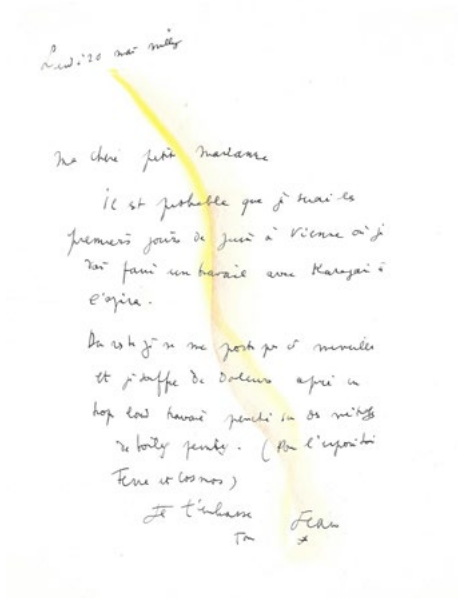 Lundi 20 mai Milly
Ma chère petite Marianne
Il est probable que je serai les
premiers jours de Juin à Vienne où je
dois faire un travail avec Karajan à
l'opéra.
Du reste je ne me porte pas à merveille
et je souffre de douleurs après un
trop lourd travail penché sur des mètres
de toiles peintes. (Pour l'exposition
Terre et Cosmos)
Je t'embrasse
Ton Jean
*